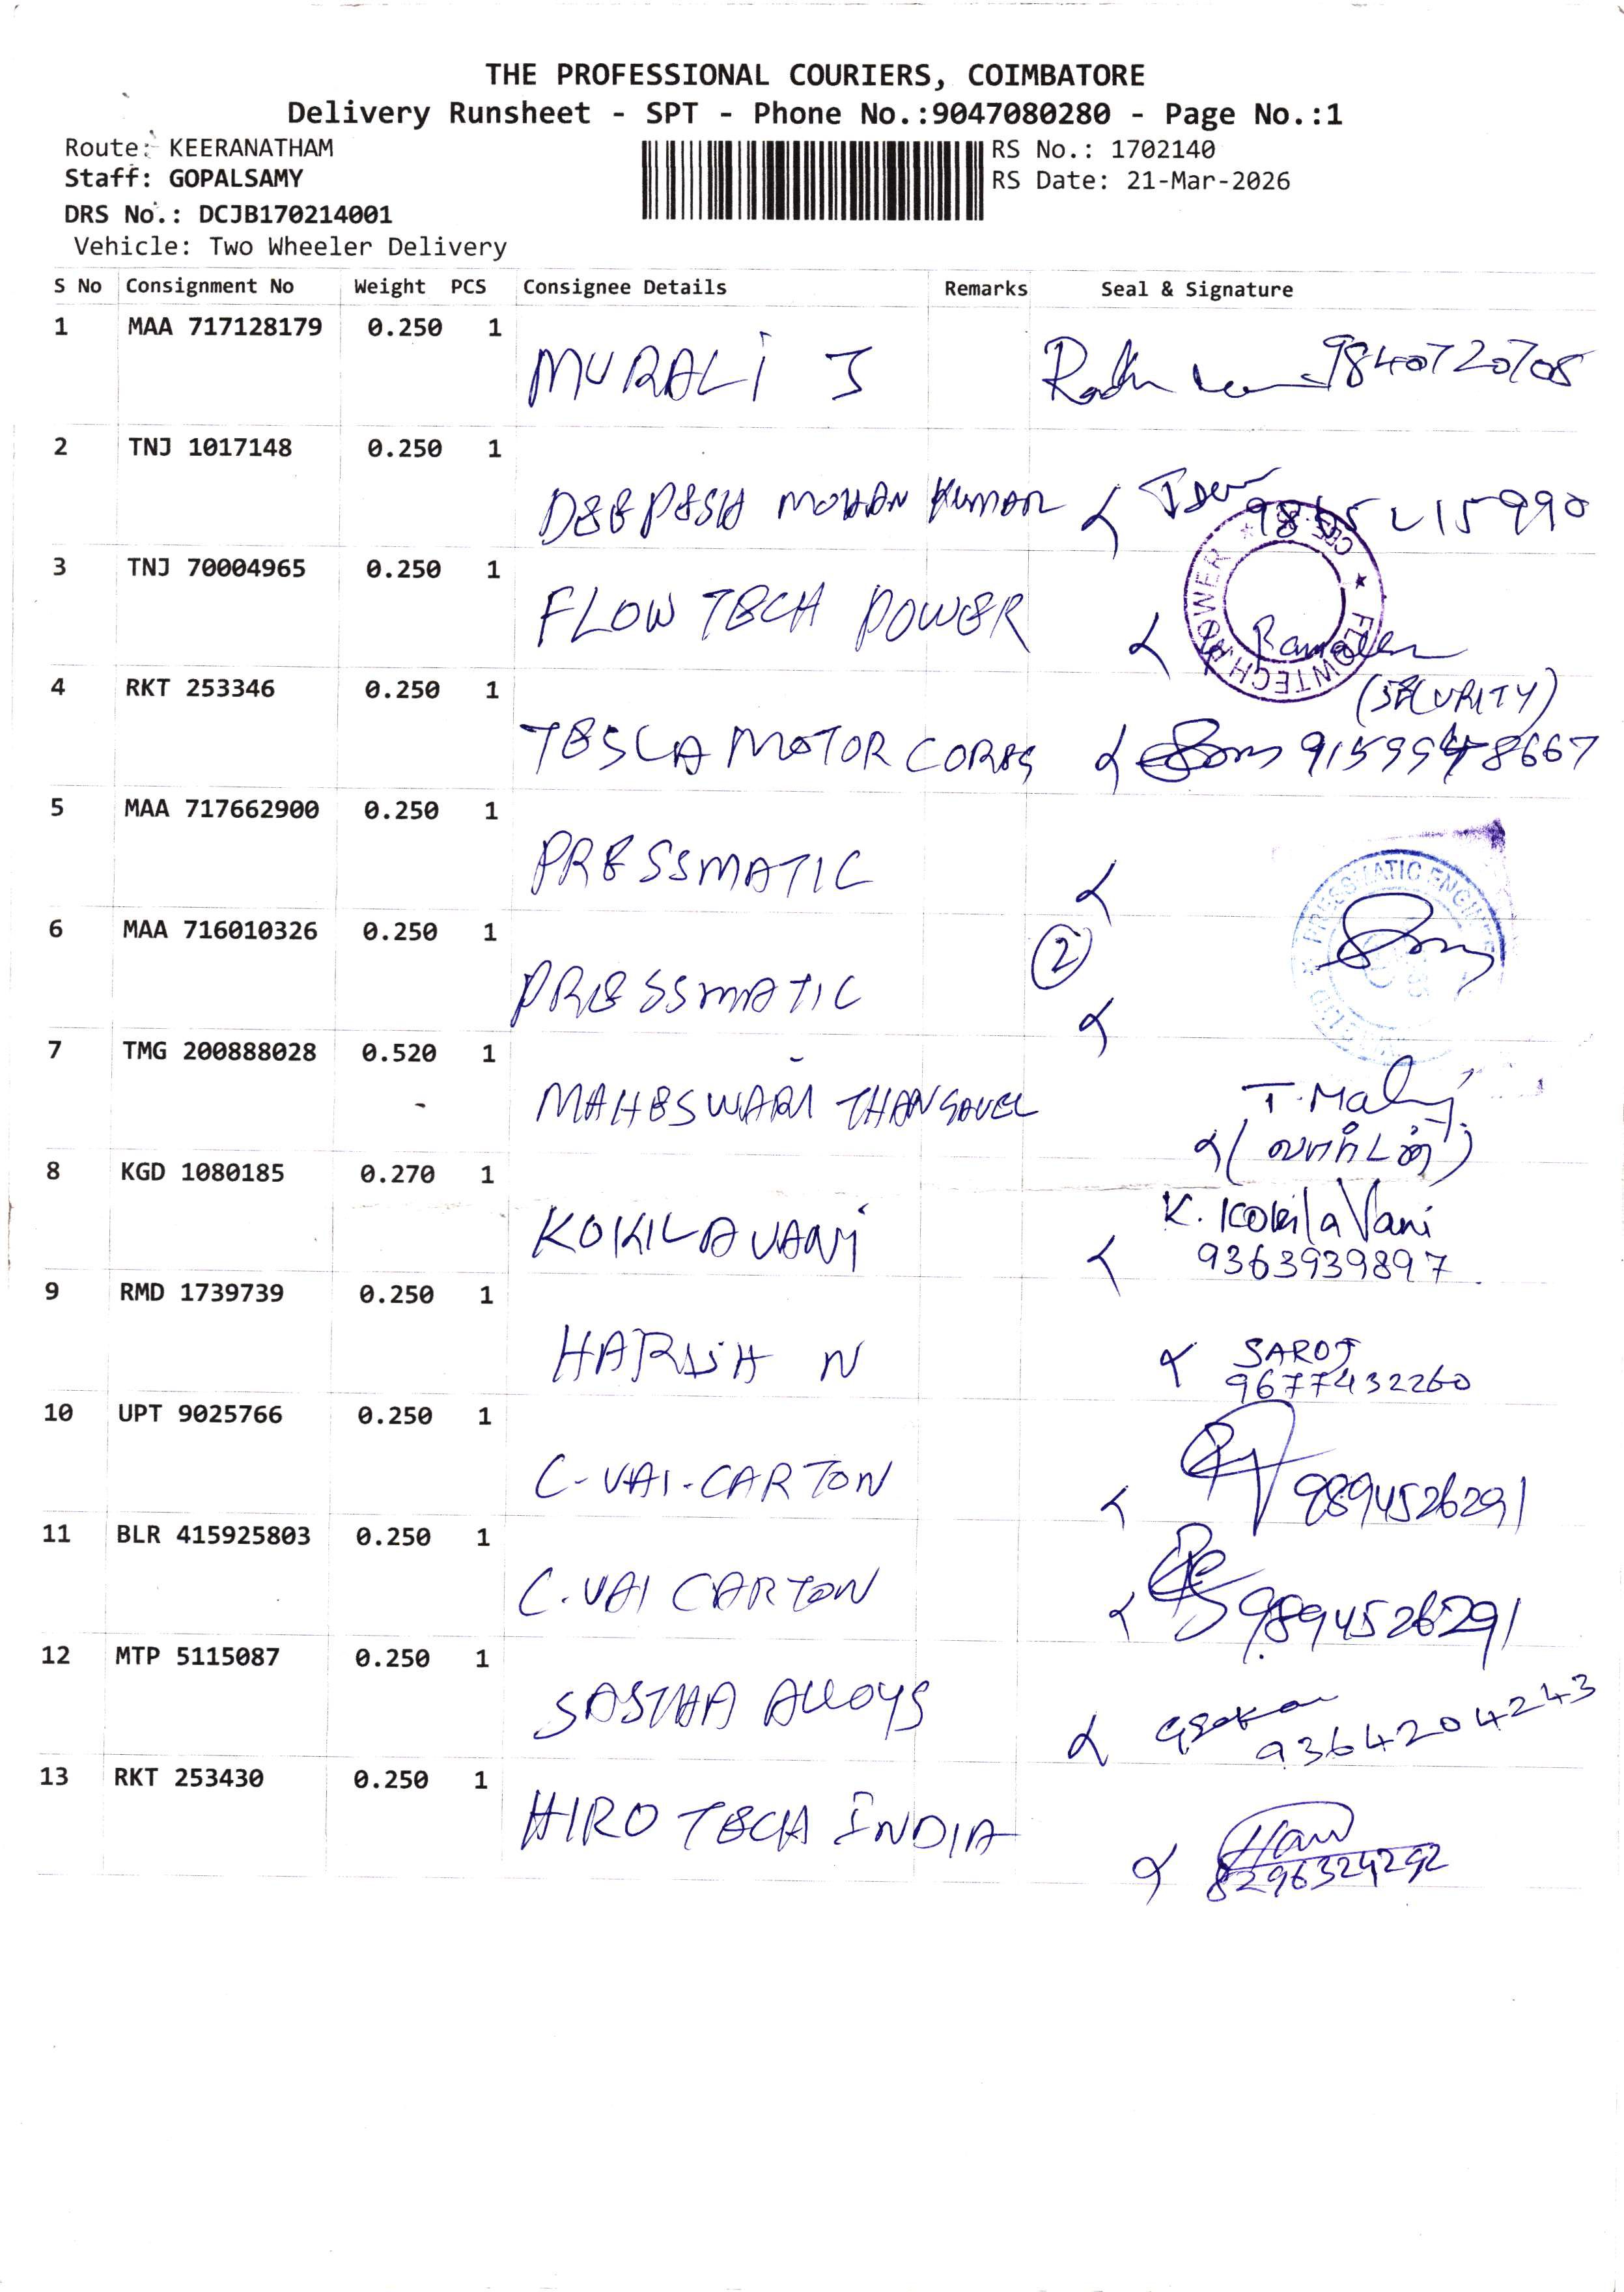 THE PROFESSIONAL COURIERS, COIMBATORE
Delivery Runsheet - SPT - Phone No.:9047080280 - Page No.:1
Route: KEERANATHAM
Staff: GOPALSAMY
DRS No.: DCJB170214001
Vehicle: Two Wheeler Delivery
RS No.: 1702140
RS Date: 21-Mar-2026
S No Consignment No Weight PCS Consignee Details Remarks Seal & Signature
1 MAA 717128179 0.250 1
MURALI J 9840720708
2 TNJ 1017148 0.250 1
DEEPESH MOHAN KUMAR
3 TNJ 70004965 0.250 1
FLOW TECH POWER
FLOWTECH POWER
4 RKT 253346 0.250 1
(SECURITY)
TESLA MOTOR CORES
5 MAA 717662900 0.250 1
PRESSMATIC
PRESSMATIC
6 MAA 716010326 0.250 1
2
PRESSMATIC
7 TMG 200888028 0.520 1
MAHESWARI THANGAVEL T.
8 KGD 1080185 0.270 1
KOKILAVANI K. KokilaVani
9363939897
9 RMD 1739739 0.250 1
HARISH N SAROJ
9677432260
10 UPT 9025766 0.250 1
C-VAI-CARTON 9894526291
11 BLR 415925803 0.250 1
C.VAI CARTON 9894526291
12 MTP 5115087 0.250 1
SASTHA ALLOYS
9364204243
13 RKT 253430 0.250 1
HIRO TECH INDIA
8296324292